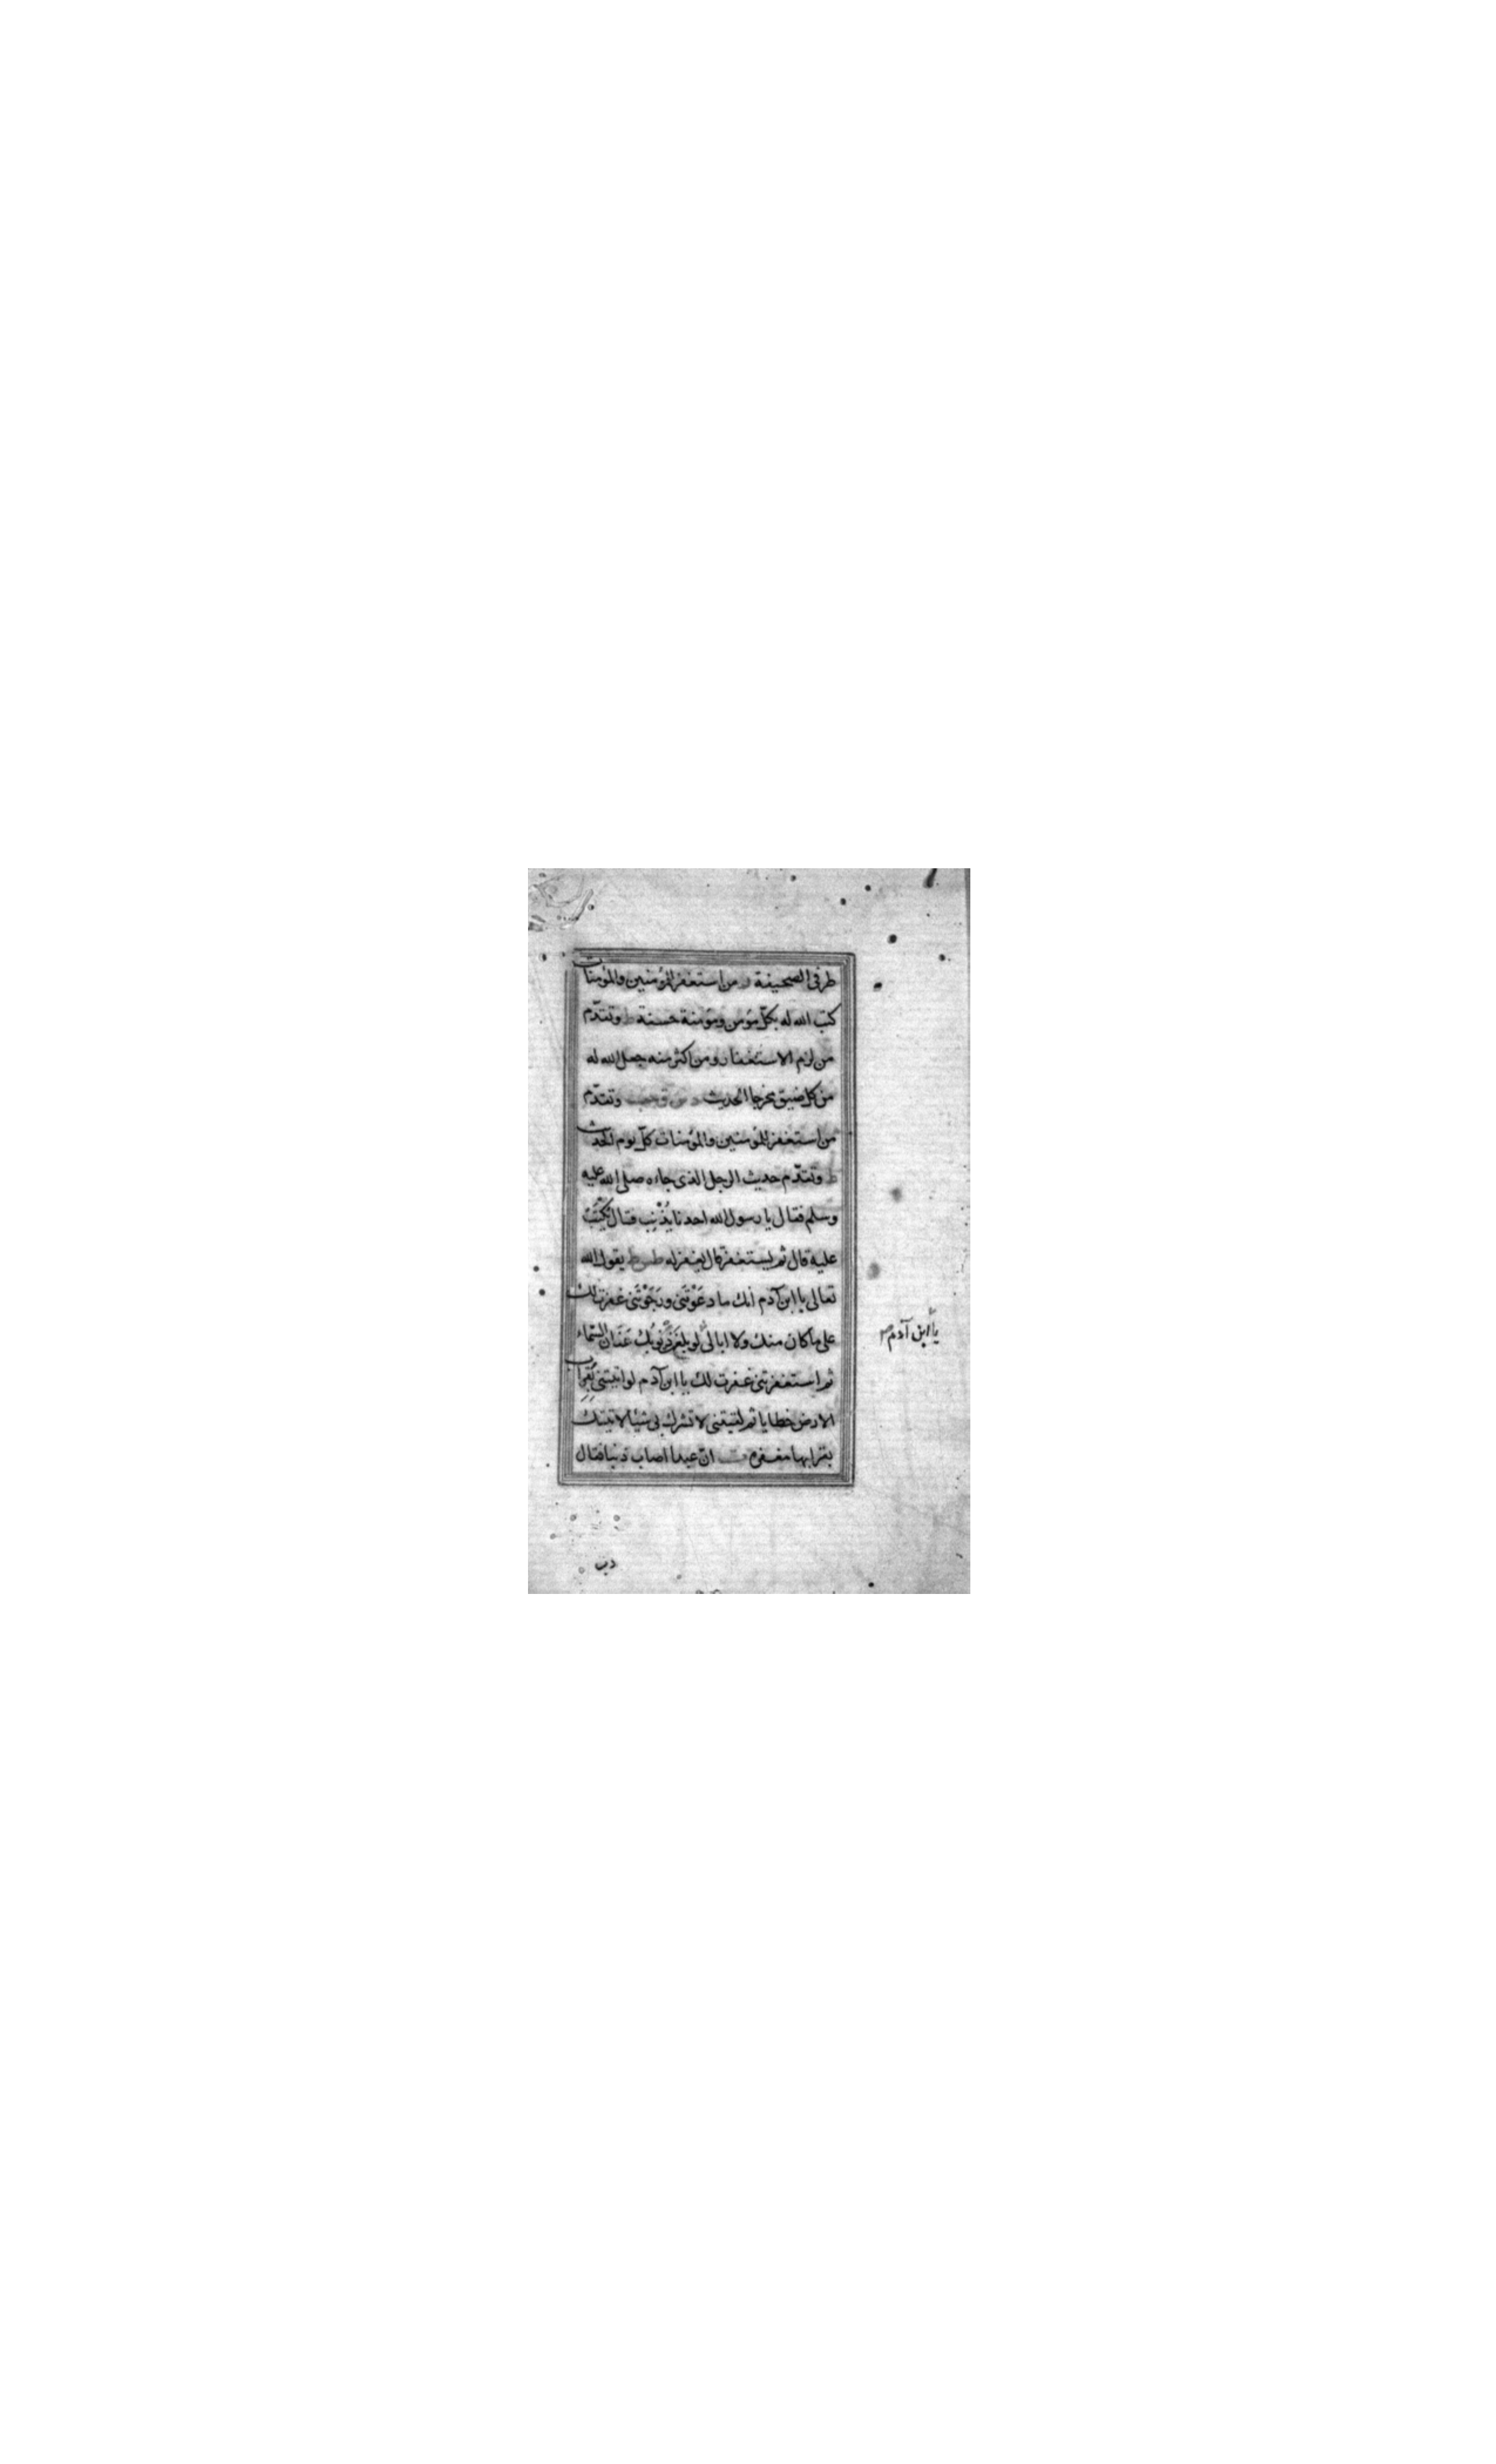 طر في الصحيفة ر من استغفر للمؤمنين والمؤمنات
كتب الله له بكلّ مؤمن ومؤمنة حسنة ط وتقدّم
من لزم الاستغفار ومن اكثر منه جعل الله له
من كل ضيق مخرجا الحديث د س ق حب وتقدّم
من استغفر للمؤمنين والمؤمنات كلّ يوم الحديث
ط وتقدّم حديث الرجل الذى جاءه صلى الله عليه
وسلم فقال يا رسول الله احدنا يُذْنِب قال يُكْتَبُ
عليه قال ثم يستغفر قال يغفر له طس ط يقول الله
تعالى يا ابن آدم انك ما دعَوْتَنى ورجَوْتَنى غفرت لك
على ما كان منك ولا ابالى لو بلغت ذُنوبُك عَنَان السّماء
ثم استغفرتنى غفرت لك يا ابن آدم لو اتيتنى بقُراب
الارض خطايا ثم لقيتنى لا تشرك بى شيئا لاتيتك
بقرابها مغفرة ت انّ عبدا اصاب ذنبا فقال
يا ابن آدم